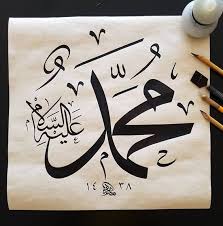 محمد
عليه السلام
١٤٣٨